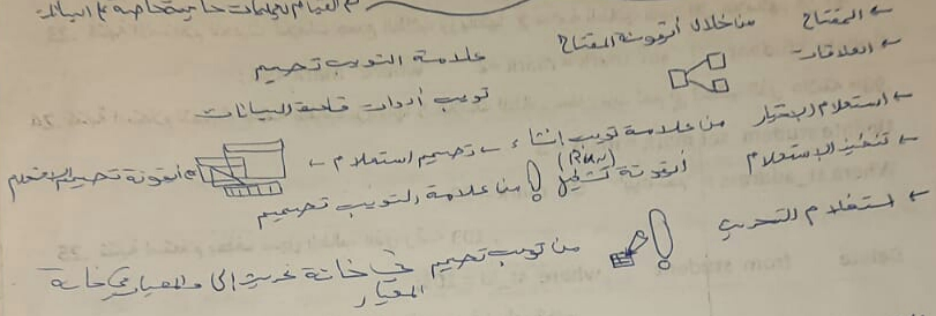 القيام بعمليات حسابية خاصة على البيانات
← المفتاح من خلال أيقونة المفتاح علامة التبويب تصميم
← العلاقات تبويب أدوات قاعدة البيانات
← استعلام الاختيار من علامة تبويب إنشاء ← تصميم استعلام ← أيقونة تصميم الاستعلام
← تنفيذ الاستعلام أيقونة تشغيل (Run) ! من علامة التبويب تصميم
← استعلام التحديث ! من تبويب تصميم في خانة تحديث إلى والمعيار في خانة
المعيار